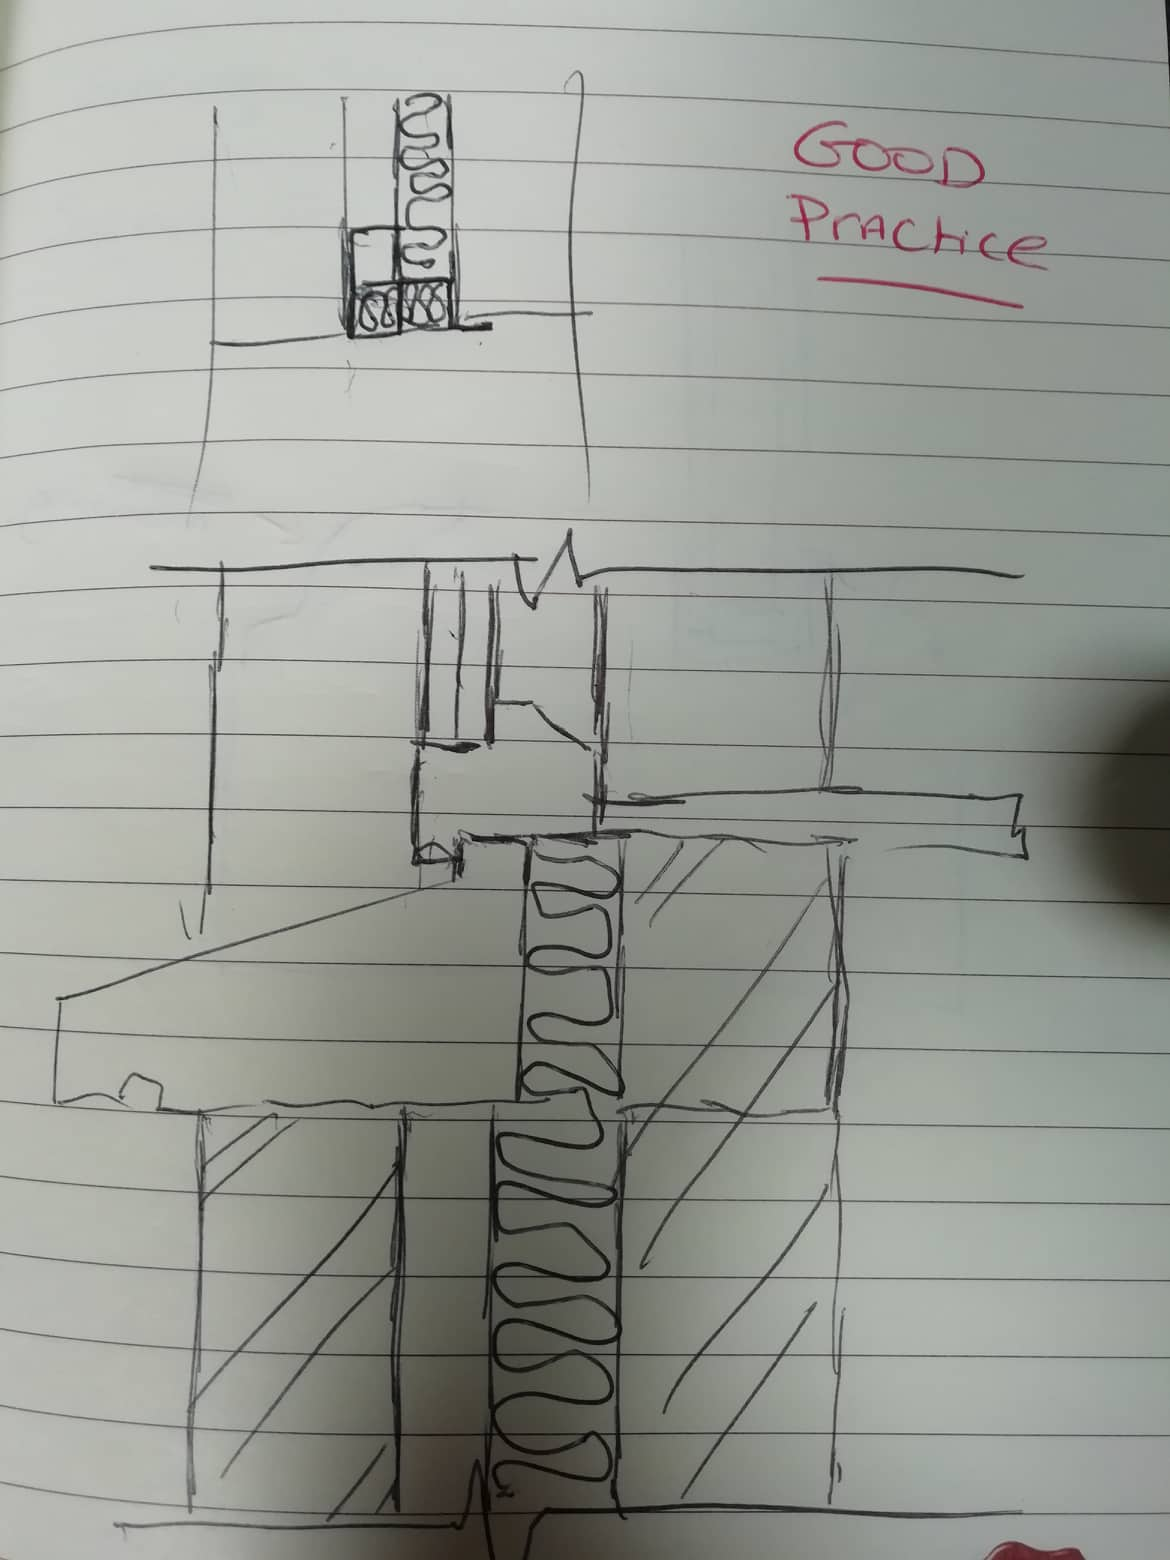 GOOD
PrACtice